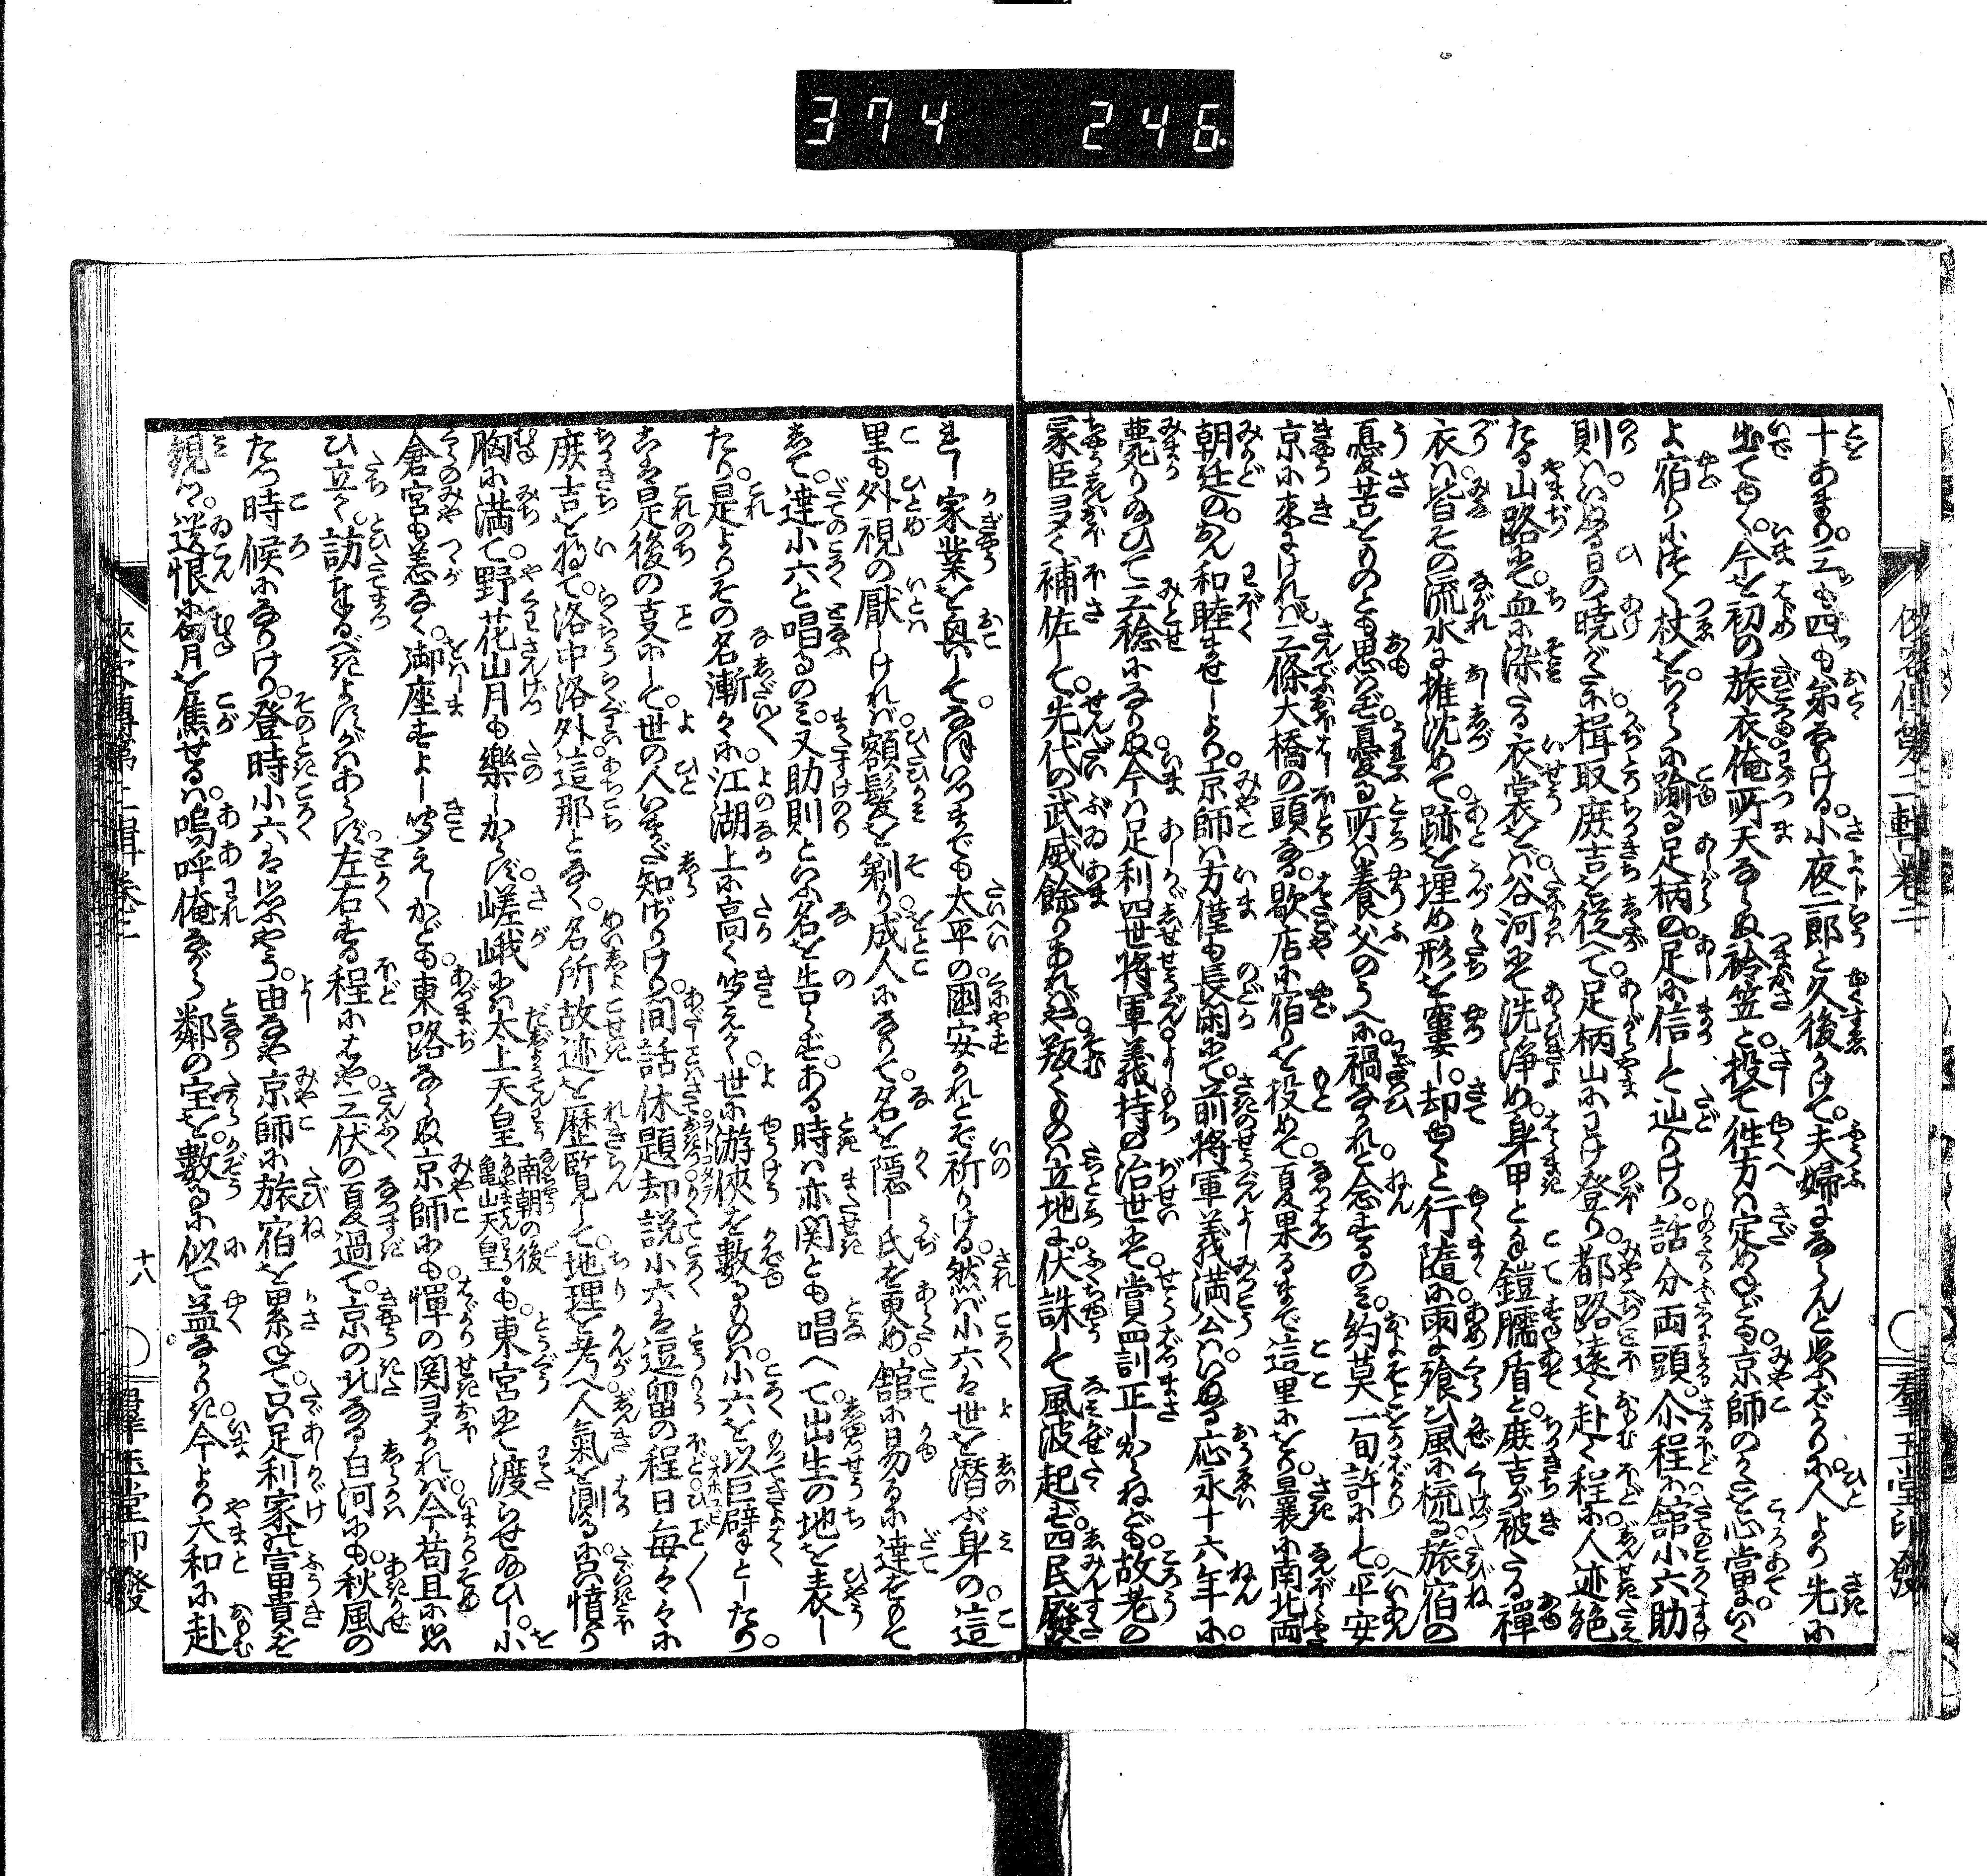 374 246
俠客傳第二輯卷二
群玉堂印發
十あまり。三も四も弟なりける。小夜二郎と久後かけて。夫婦になさんと思ふばかりに人より先に
出てもゆく。今を初の旅衣俺所天ならぬ袷笠と。投て徃方は定めねども京師のかたを心當にいく
よ宿りにつく杖を。ちからに踰る足柄の。足に信して辿りけり。話分両頭。介程に舘小六助
則は。いぬる日の暁がたに楫取庻吉を後へて足柄山にわけ登り。都路遠く赴く程に。人迹絶
たる山路にて。血に染たる衣裳をば。谷河にて洗浄め。身甲と手鎧臑盾と。庻吉が被たる禅
衣は。皆その流水に推沈めて。跡を埋め形を窶し。却ゆくゆくと行隨に。雨に飱ひ風に梳る。旅宿の
憂苦をものとも思はず。憂る所は養父のうへに。禍なかれと念ずるのみ。約莫一旬許にして。平安
京に来にければ。三條大橋の頭なる。歇店に宿りを投めて。夏果るまで這里にをり。曩に南北両
朝廷の。おん和睦ませしより。京師は方僅も長閑にて。前將軍義満公は。いぬる応永十六年に。
薨りのひて三稔になりぬ。今は足利四世將軍。義持の治世にて。賞罰訓正しからねども。故老の
冢臣ヨク補佐して。先代の武威餘りあれば。叛くものは立地に。伏誅して風波起らず。四民廢
れし家業を興して。なほいつまでも太平の。國安かれとぞ祈りける。然ば小六は世を潛ぶ身の。這
里も外視の厭しければ。額髪を剃り。成人になりて名を隠し。氏を更め舘に易るに。達をもて
して。達小六と唱るのみ。又助則といふ名を告らず。ある時は亦関とも唱へて。出生の地を表し
たり。是よりその名漸々に。江湖上に高く聞えて。世に游俠を數るものは。小六を以巨擘としたり。
こは是後の事にして。世の人いまだ知ざりけり。間話休題却説小六は逗留の程。日毎々々に
庻吉を将て。洛中洛外。這那となく。名所故迹を歴覧して。地理を考へ人氣を測るに。只憤り
胸に満て。野花山月も樂しからず。嵯峨には太上天皇南朝の後亀山天皇も。東宮にて渡らせ給ひし。小
倉宮も恙なく。御座すよし聞えしかども。東路ならぬ京師にも。憚の関ヨければ。今苟且に思
ひ立て。訪奉るべきよすがはあらず。左右する程にはや。三伏の夏過て。京の北なる白河にも。秋風の
たつ時候になりけり。登時小六は思ふやう。由なや京師に旅宿を累ねて。只足利家の富貴を
覩つ。送恨に胸を焦せるは。嗚呼俺ながら鄰の宝を。數るに似て益なかりき。今より大和に赴
俠客傳第二輯卷二
十八
群玉堂印發